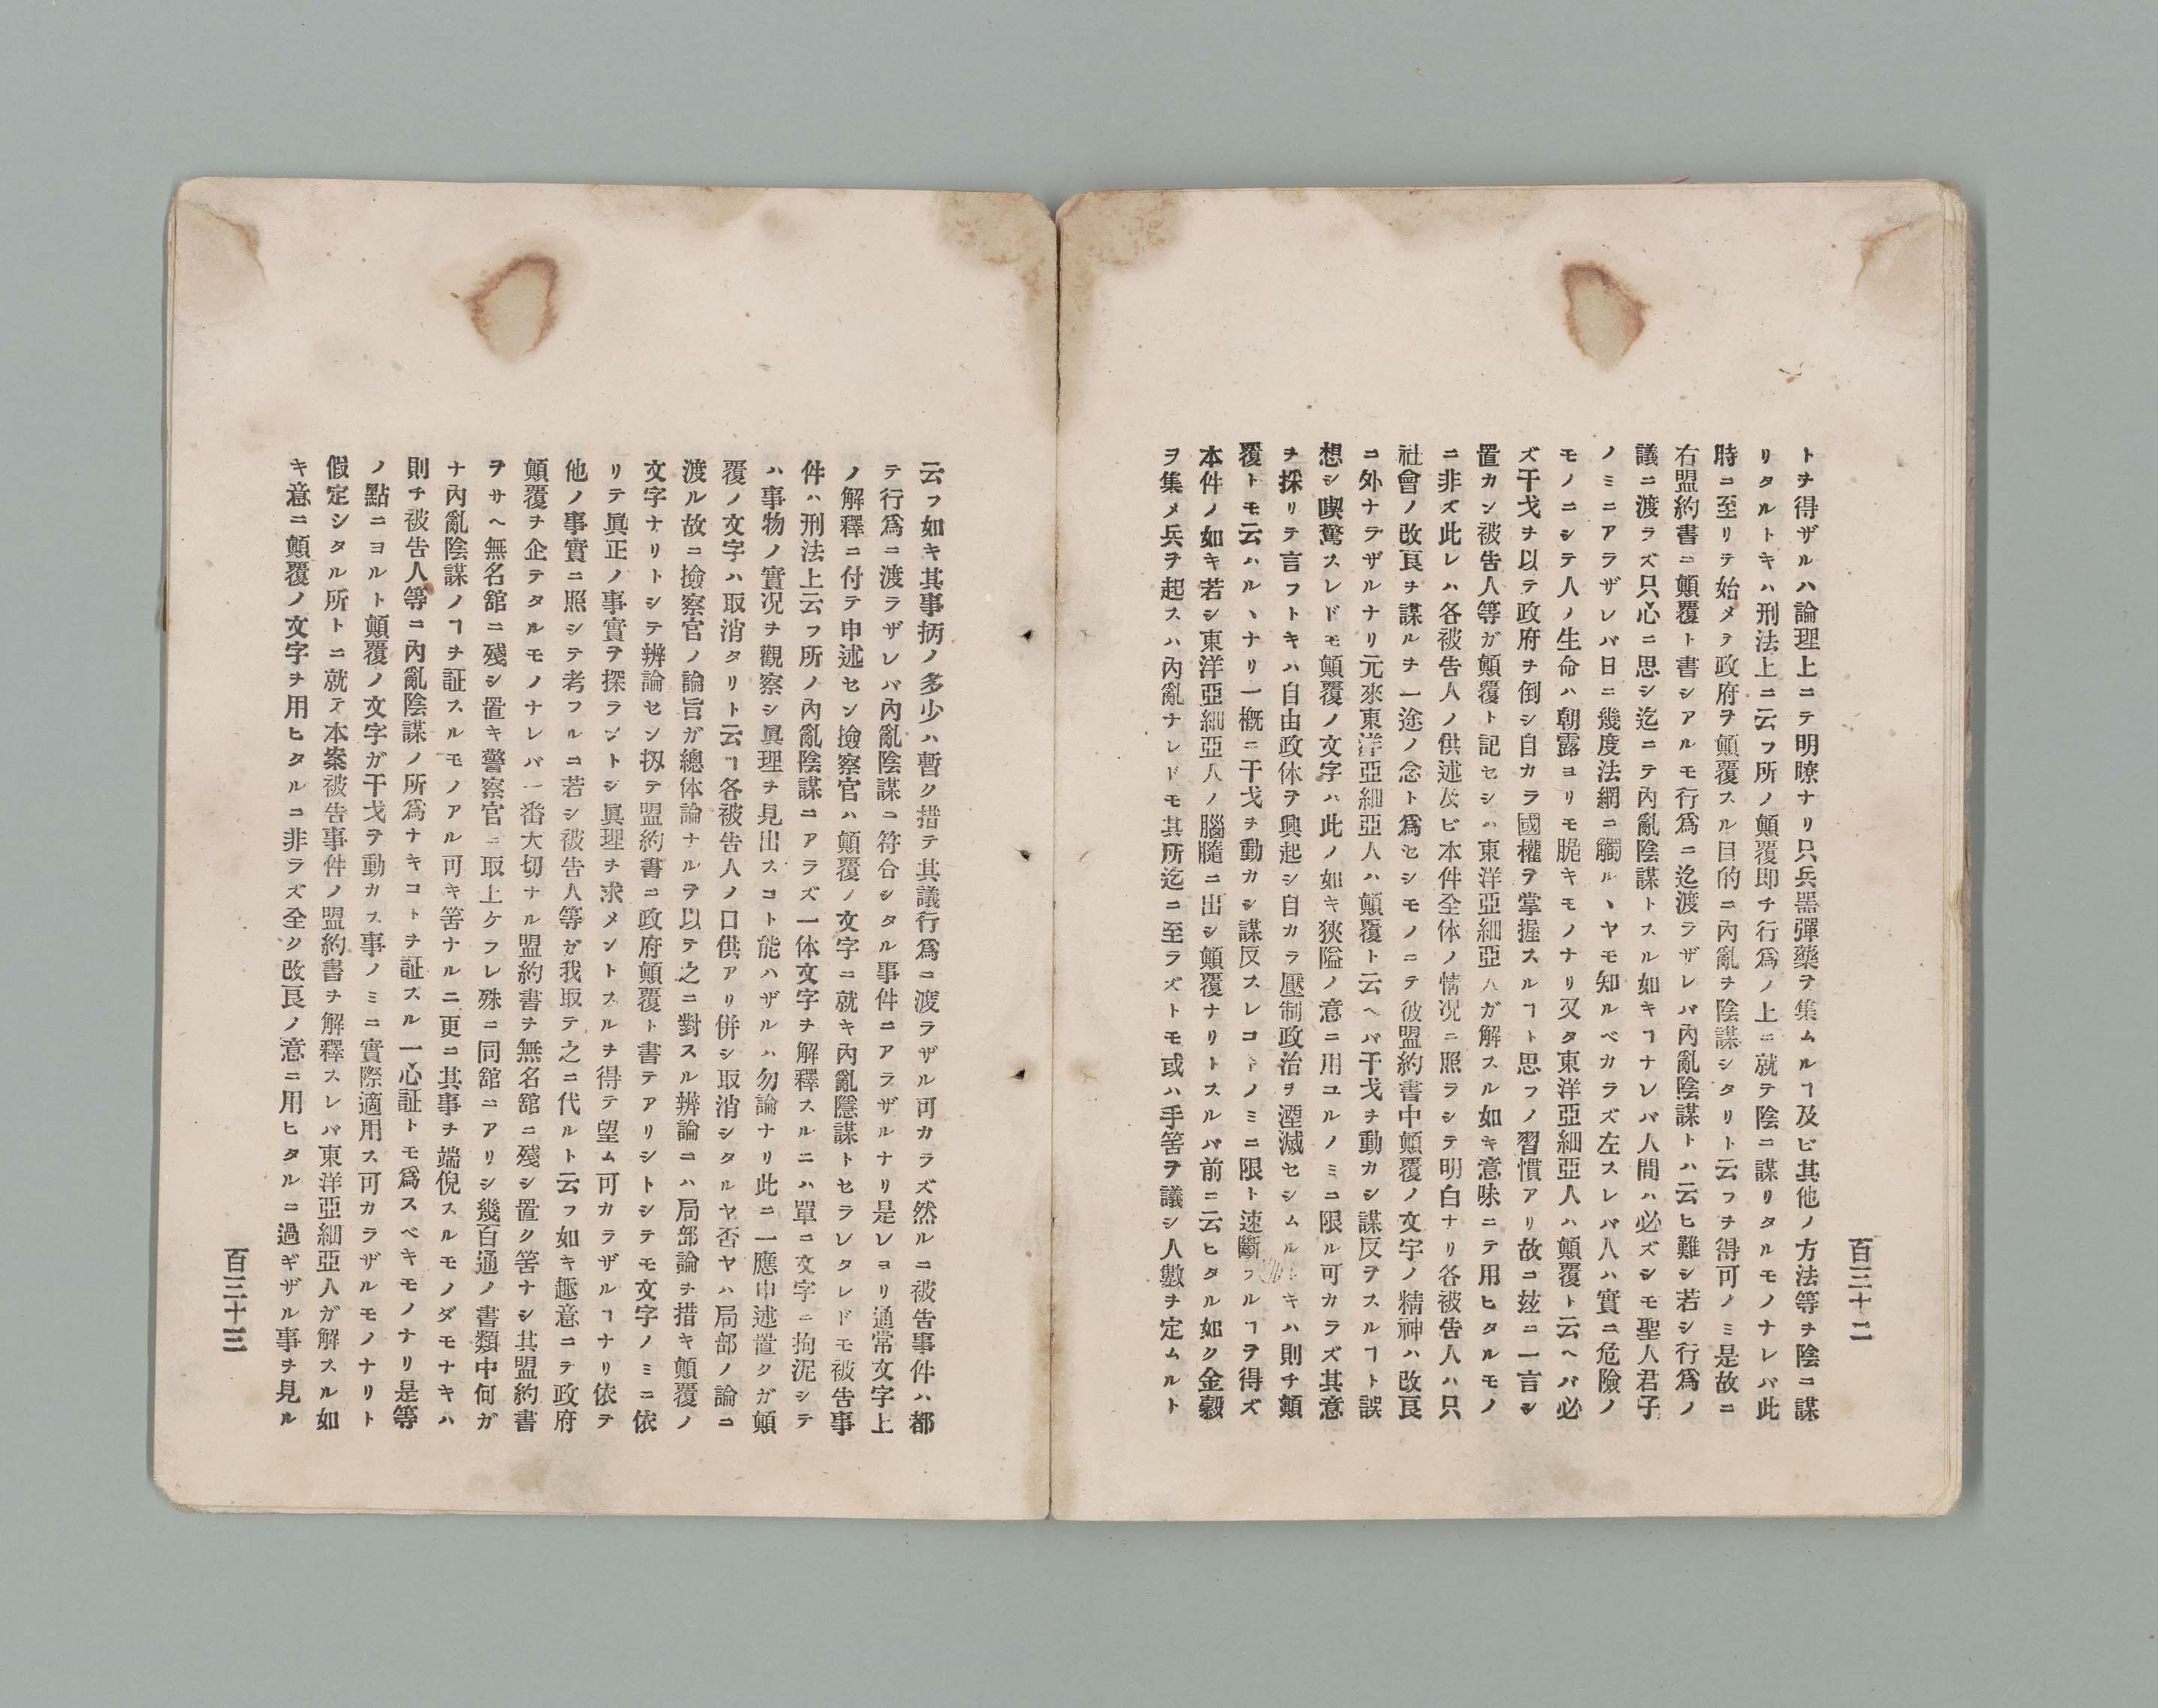 百三十二
トヲ得ザルハ論理上ニテ明瞭ナリ只兵器彈藥ヲ集ムルヿ及ビ其他ノ方法等ヲ陰ニ謀
リタルトキハ刑法上ニ云フ所ノ顛覆即チ行爲ノ上ニ就テ陰ニ謀リタルモノナレバ此
時ニ至リテ始メヲ政府ヲ顛覆スル目的ニ內亂ヲ陰謀シタリト云フヲ得可ノミ是故ニ
右盟約書ニ顛覆ト書シアルモ行爲ニ迄渡ラザレバ內亂陰謀トハ云ヒ難シ若シ行爲ノ
議ニ渡ラズ只心ニ思シ迄ニテ內亂陰謀トスル如キヿナレバ人間ハ必ズシモ聖人君子
ノミニアラザレバ日ニ幾度法網ニ觸ルヽヤモ知ルベカラズ左スレバ人ハ實ニ危險ノ
モノニシテ人ノ生命ハ朝露ヨリモ脆キモノナリ又タ東洋亞細亞人ハ顛覆ト云ヘバ必
ズ干戈ヲ以テ政府ヲ倒シ自カラ國權ヲ掌握スルヿト思フノ習慣アリ故ニ玆ニ一言シ
置カン被告人等ガ顛覆ト記セシハ東洋亞細亞人ガ解スル如キ意味ニテ用ヒタルモノ
ニ非ズ此レハ各被告人ノ供述及ビ本件全体ノ情况ニ照ラシテ明白ナリ各被告人ハ只
社會ノ改良ヲ謀ルヲ一途ノ念ト爲セシモノニテ彼盟約書中顛覆ノ文字ノ精神ハ改良
ニ外ナラザルナリ元來東洋亞細亞人ハ顛覆ト云ヘバ干戈ヲ動カシ謀反ヲスルヿト誤
想シ喫驚スレドモ顛覆ノ文字ハ此ノ如キ狹隘ノ意ニ用ユルノミニ限ル可カラズ其意
ヲ採リテ言フトキハ自由政体ヲ興起シ自カラ壓制政治ヲ湮滅セシムルトキハ則チ顛
覆トモ云ハルヽナリ一槪ニ干戈ヲ動カシ謀反スレコトノミニ限ト速斷スルヿヲ得ズ
本件ノ如キ若シ東洋亞細亞人ノ腦髓ニ出シ顛覆ナリトスルバ前ニ云ヒタル如ク金穀
ヲ集メ兵ヲ起スハ內亂ナレドモ其所迄ニ至ラズトモ或ハ手筈ヲ議シ人數ヲ定ムルト
云フ如キ其事柄ノ多少ハ暫ク措テ其議行爲ニ渡ラザル可カラズ然ルニ被告事件ハ都
テ行爲ニ渡ラザレバ內亂陰謀ニ符合シタル事件ニアラザルナリ是レヨリ通常文字上
ノ解釋ニ付テ申述セン撿察官ハ顛覆ノ文字ニ就キ內亂隱謀トセラレタレドモ被告事
件ハ刑法上云フ所ノ內亂陰謀ニアラズ一体文字ヲ解釋スルニハ單ニ文字ニ拘泥シテ
ハ事物ノ實况ヲ觀察シ眞理ヲ見出スコト能ハザルハ勿論ナリ此ニ一應申述置クガ顛
覆ノ文字ハ取消タリト云ヿ各被告人ノ口供アリ併シ取消シタルヤ否ヤハ局部ノ論ニ
渡ル故ニ撿察官ノ論旨ガ總体論ナルヲ以テ之ニ對スル辨論ニハ局部論ヲ措キ顛覆ノ
文字ナリトシテ辨論セン扨テ盟約書ニ政府顛覆ト書テアリシトシテモ文字ノミニ依
リテ眞正ノ事實ヲ探ラントシ眞理ヲ求メントスルヲ得テ望ム可カラザルヿナリ依テ
他ノ事實ニ照シテ考フルニ若シ被告人等ガ我取テ之ニ代ルト云フ如キ趣意ニテ政府
顛覆ヲ企テタルモノナレバ一番大切ナル盟約書ヲ無名舘ニ殘シ置ク筈ナシ其盟約書
ヲサヘ無名舘ニ殘シ置キ警察官ニ取上ケラレ殊ニ同舘ニアリシ幾百通ノ書類中何ガ
ナ內亂陰謀ノヿヲ証スルモノアル可キ筈ナルニ更ニ其事ヲ端倪スルモノダモナキハ
則チ被告人等ニ內亂陰謀ノ所爲ナキコトヲ証スル一心証トモ爲スベキモノナリ是等
ノ點ニヨルト顛覆ノ文字ガ干戈ヲ動カス事ノミニ實際適用ス可カラザルモノナリト
假定シタル所トニ就テ本案被告事件ノ盟約書ヲ解釋スレバ東洋亞細亞人ガ解スル如
キ意ニ顛覆ノ文字ヲ用ヒタルニ非ラズ全ク改良ノ意ニ用ヒタルニ過ギザル事ヲ見ル
百三十三